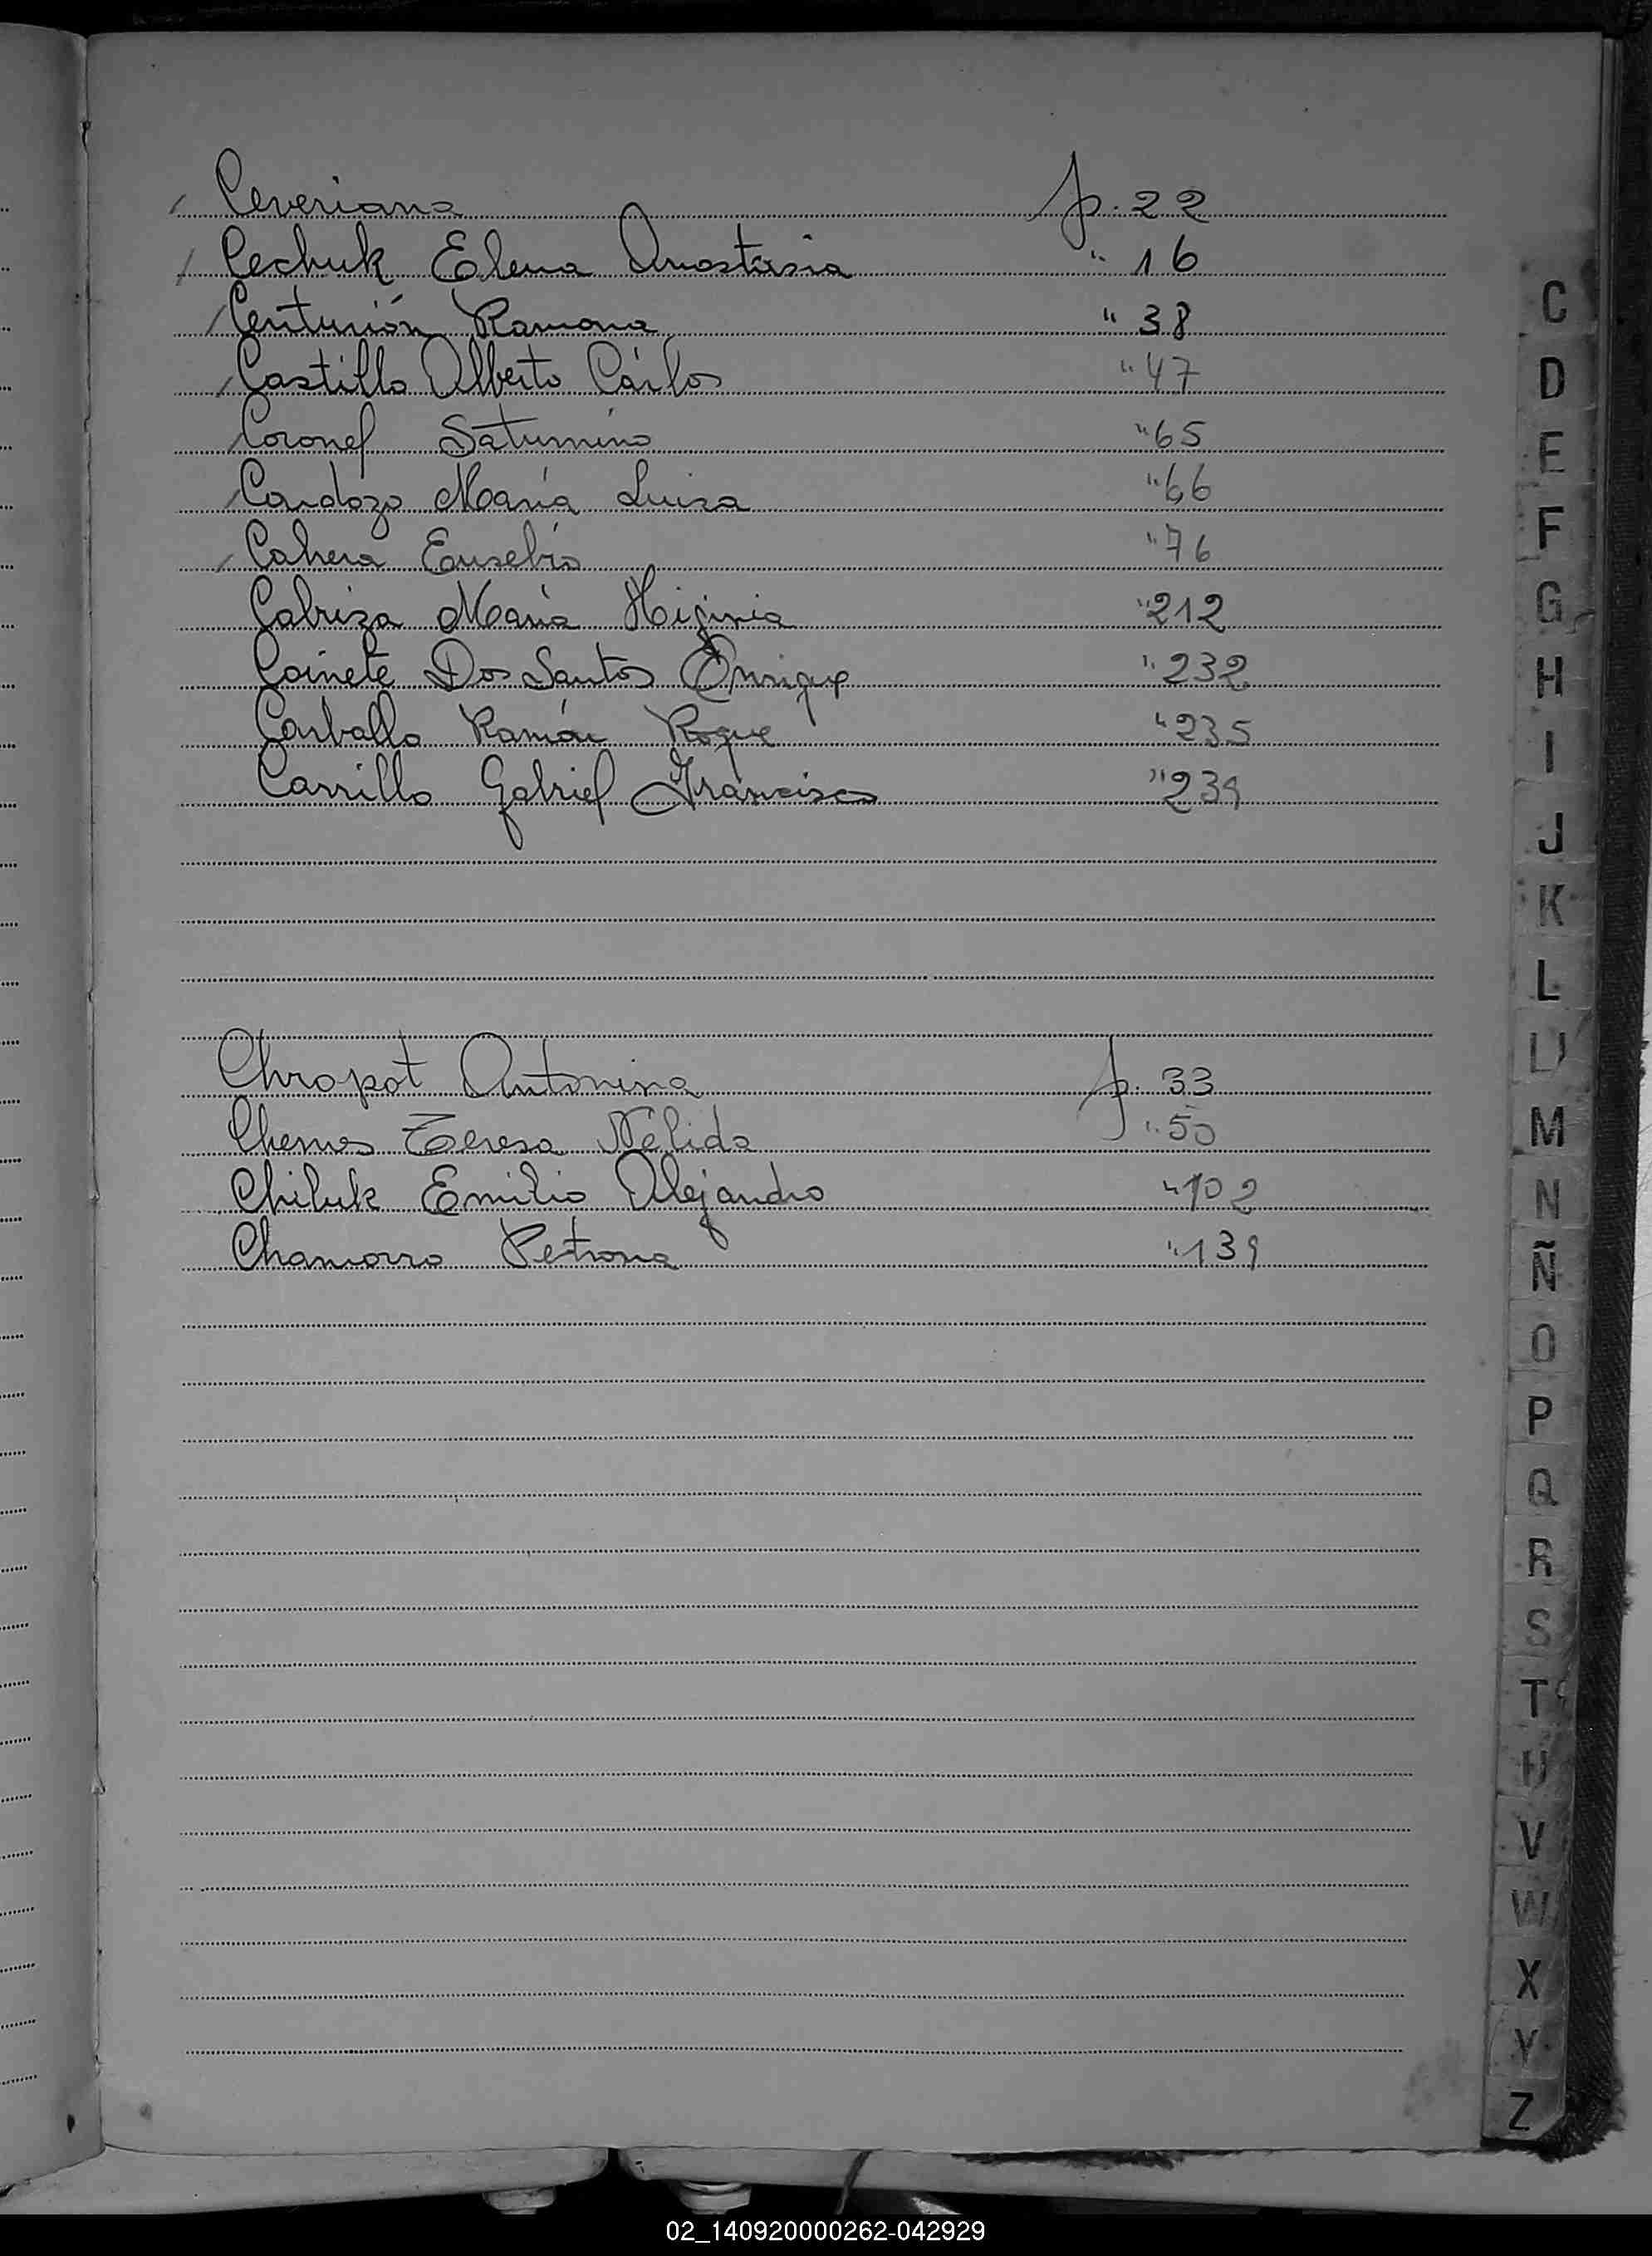 Ceveriana p. 22
Cechuk Elena Anastasia " 16
Centurión Ramona " 38
Castillo Alberto Cárlos " 47
Coronel Saturnino " 65
Cardozo María Luisa " 66
Cabera Eusebio " 76
Cabriza María Higinia " 212
Dos Santos Enrique " 232
Carballo Ramón Roque " 235
Carrillo Gabriel Francisco " 239
Chropot Antonina p. 33
Chemes Teresa Nélida " 50
Chiluk Emilio Alejandro " 102
Chamorro Petrona " 139
C
D
E
F
G
H
I
J
K
L
M
N
Ñ
O
P
Q
R
S
T
U
V
W
X
Y
Z
02_140920000262-042929